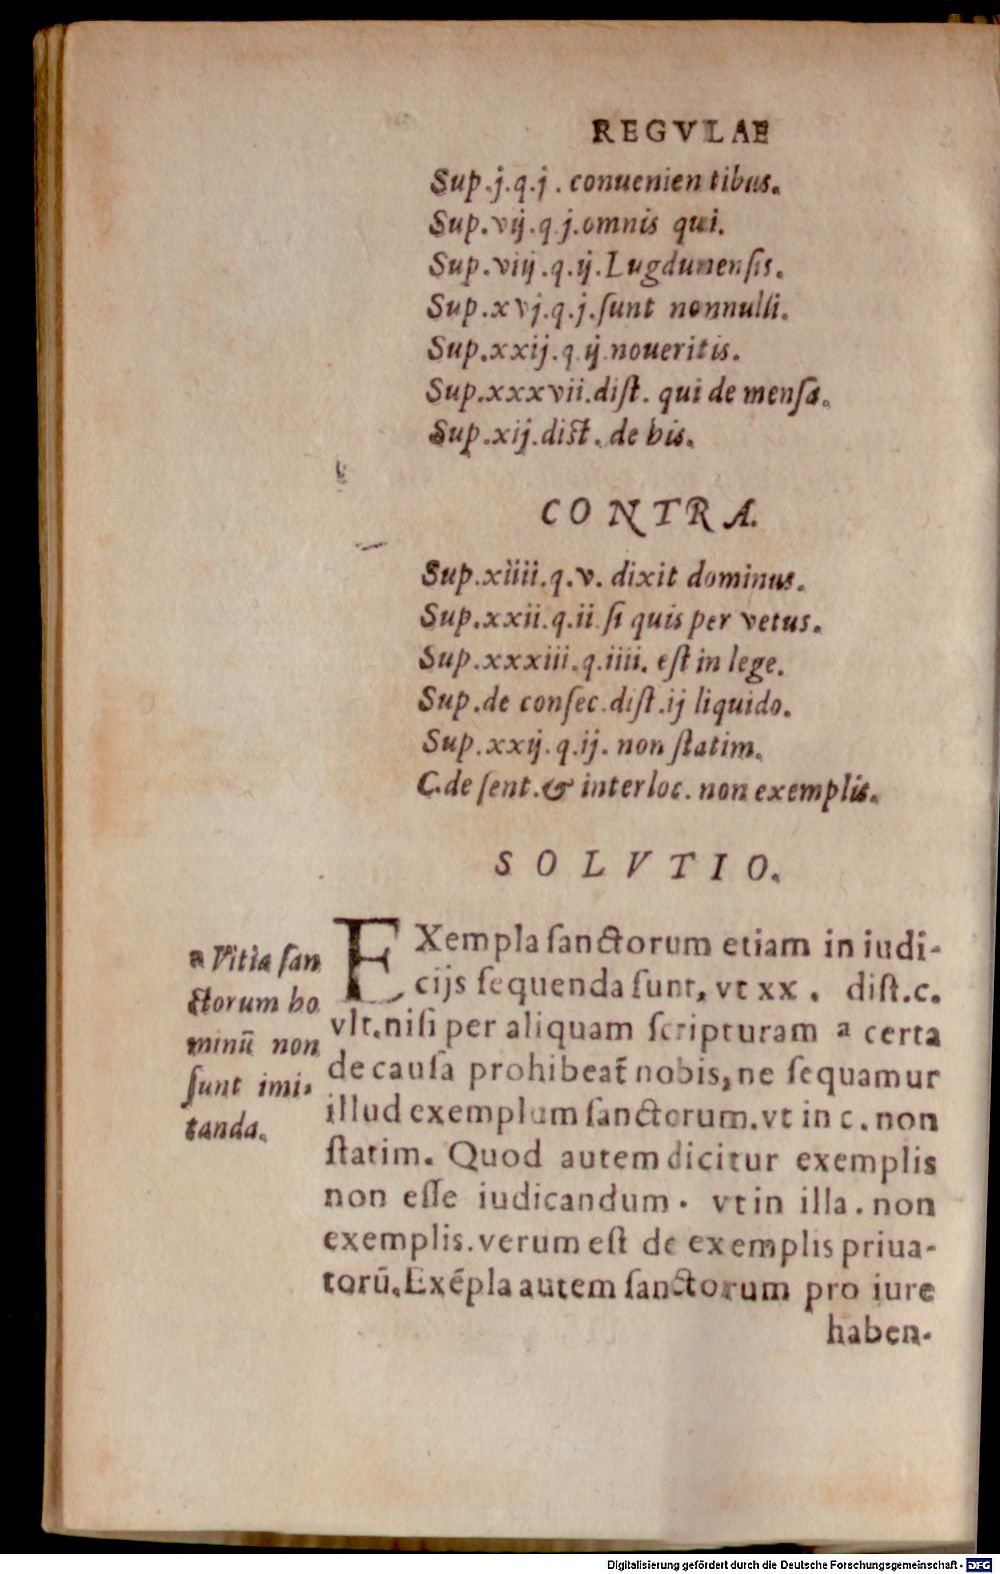 REGVLAE
Sup.j.q.j. conuenien tibus.
Sup.vij.q.j.omnis qui.
Sup.viij.q.ij.Lugdunensis.
Sup.xvj.q.j.ſunt nonnulli.
Sup.xxij.q.ij.noueritis.
Sup.xxxvii.diſt. qui de menſa.
Sup.xij.dist. de his.
CONTRA.
Sup.xiiii.q.v. dixit dominus.
Sup.xxii.q.ii.ſi quis per vetus.
Sup.xxxiii.q.iiii. eſt in lege.
Sup.de conſec.diſt.ij liquido.
Sup.xxij.q.ij. non ſtatim.
C.de ſent.& interloc. non exemplis.
SOLVTIO.
EXempla ſanctorum etiam in iudi-
cijs ſequenda ſunt, vt xx. diſt.c.
vlt.niſi per aliquam ſcripturam a certa
de cauſa prohibeat̄ nobis, ne ſequamur
illud exemplum ſanctorum.vt in c. non
ſtatim. Quod autem dicitur exemplis
non eſſe iudicandum. vt in illa. non
exemplis.verum eſt de exemplis priua-
torū.Exēpla autem ſanctorum pro iure
haben-
a Vitia ſan
ctorum ho
minū non
ſunt imi-
tanda.
Digitalisierung gefördert durch die Deutsche Forschungsgemeinschaft - DFG